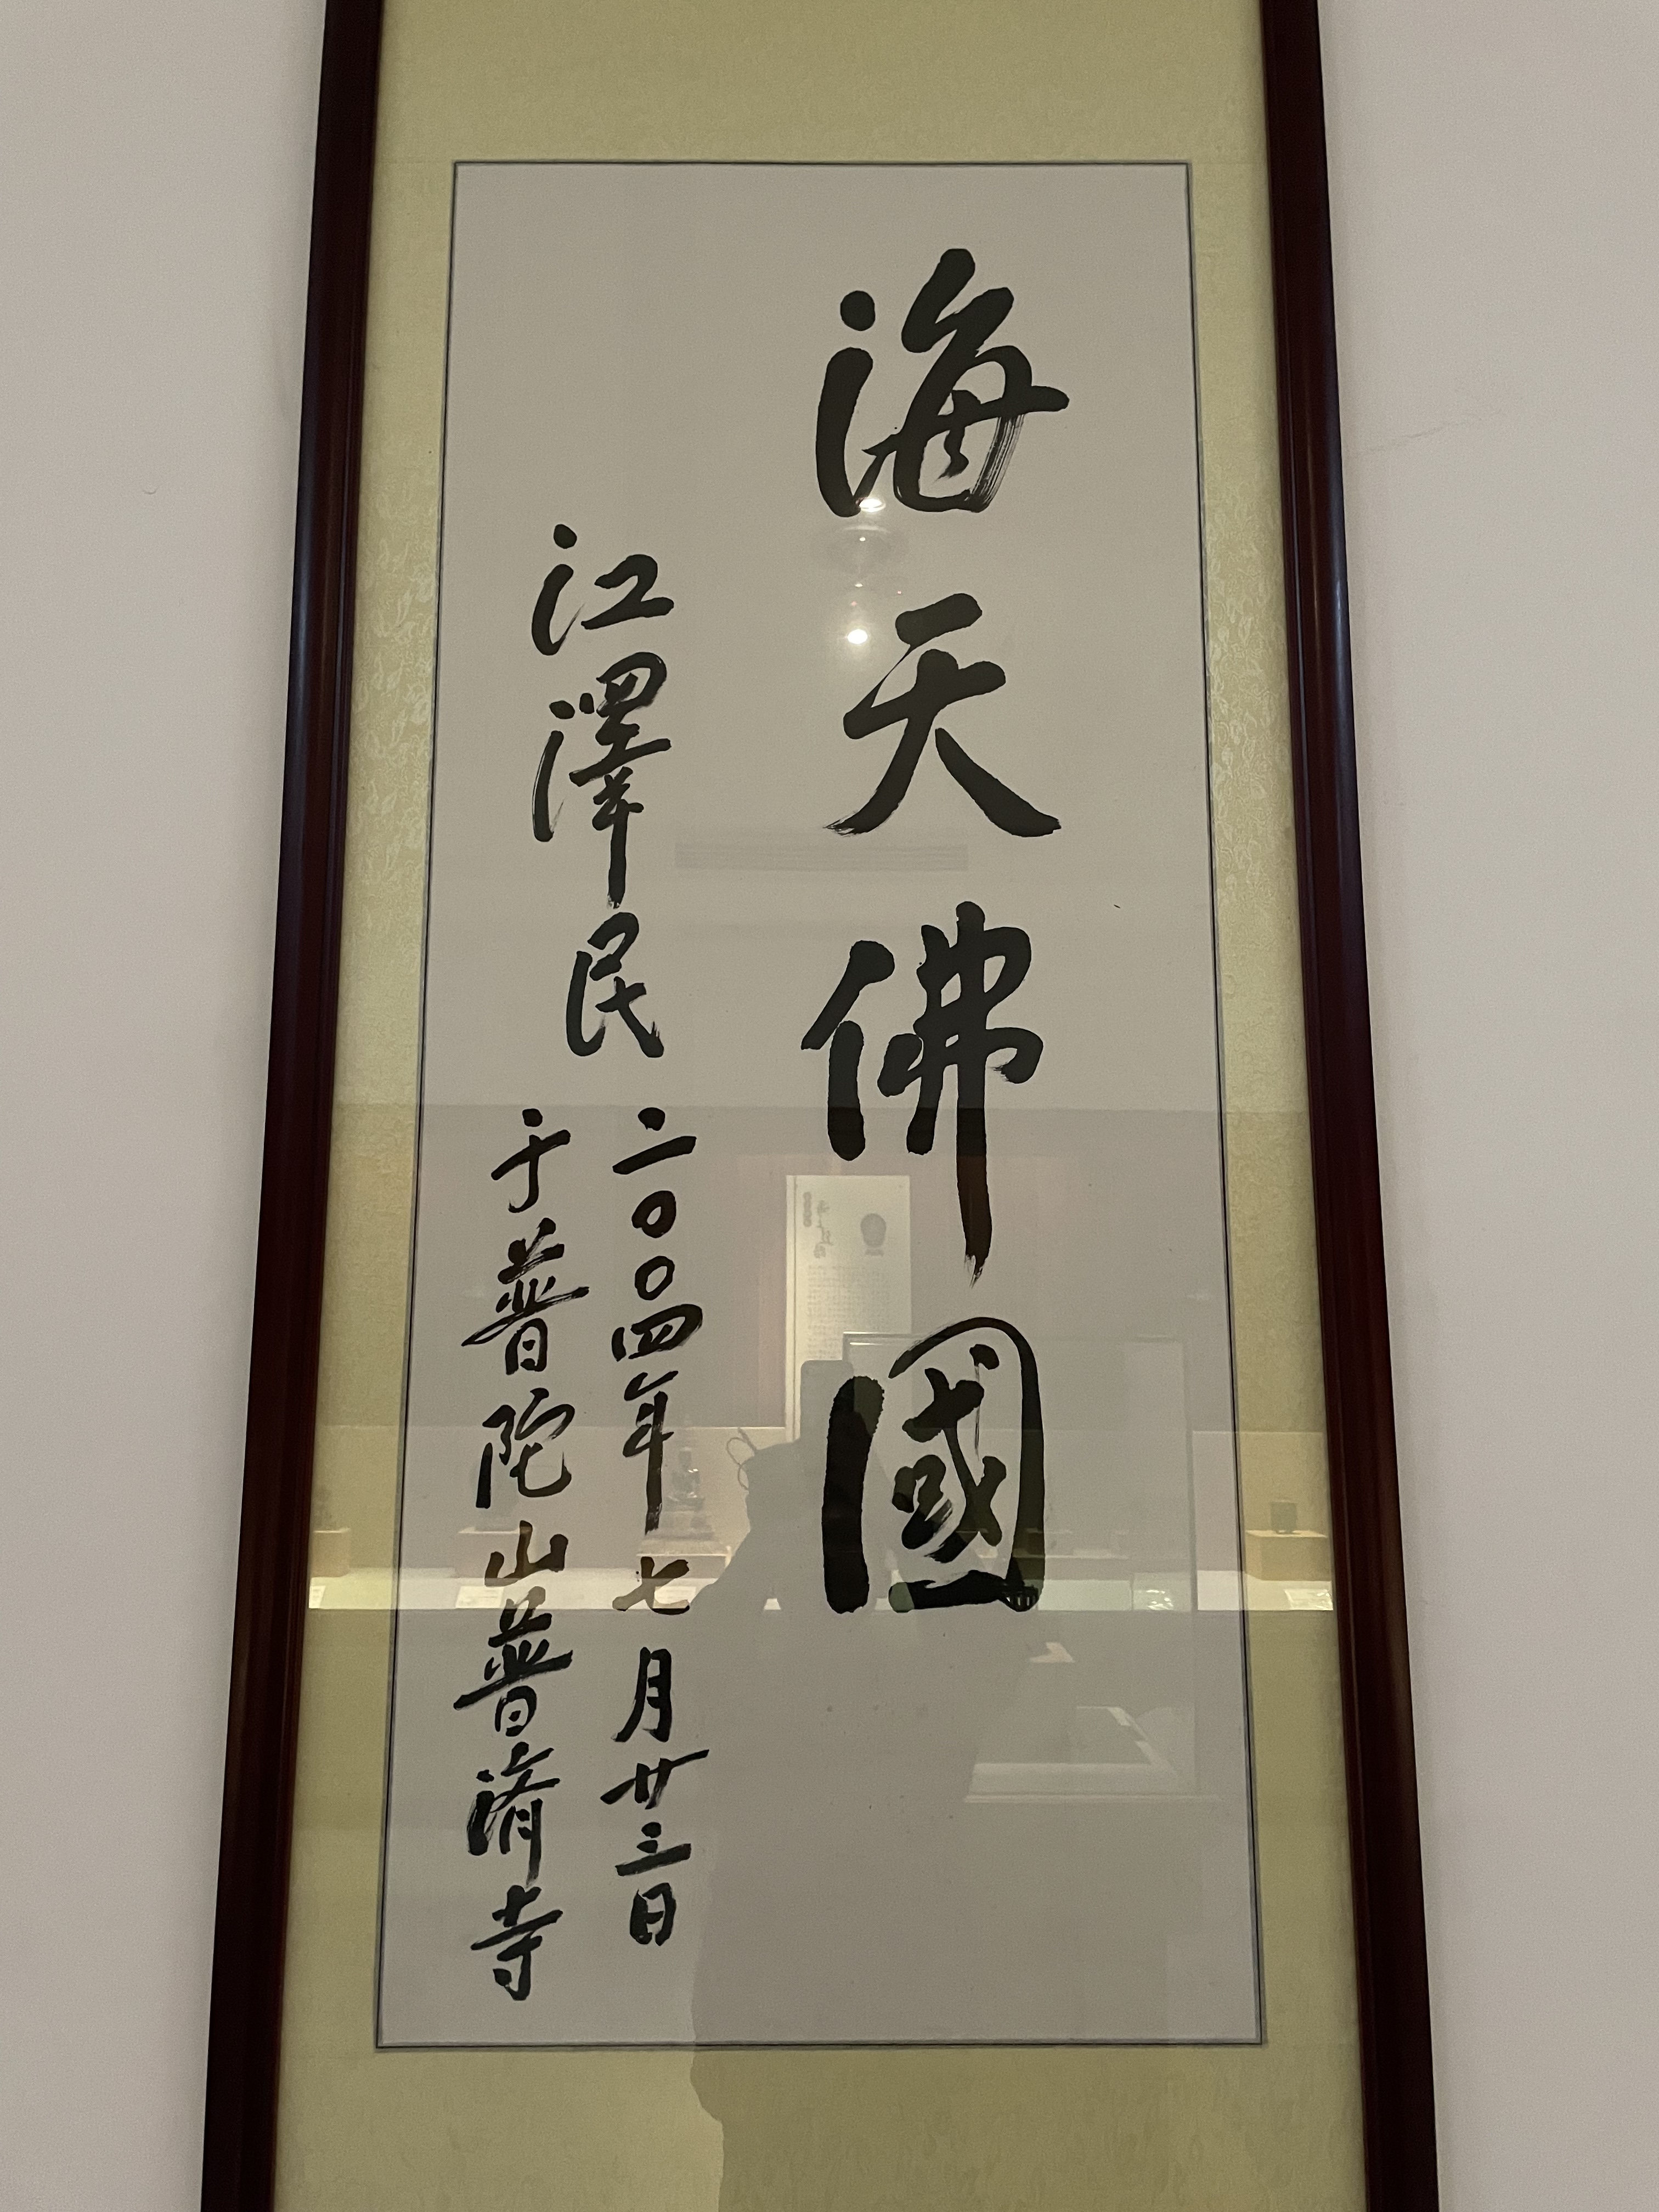 海天佛國
江澤民
二〇〇四年七月廿三日
于普陀山普濟寺